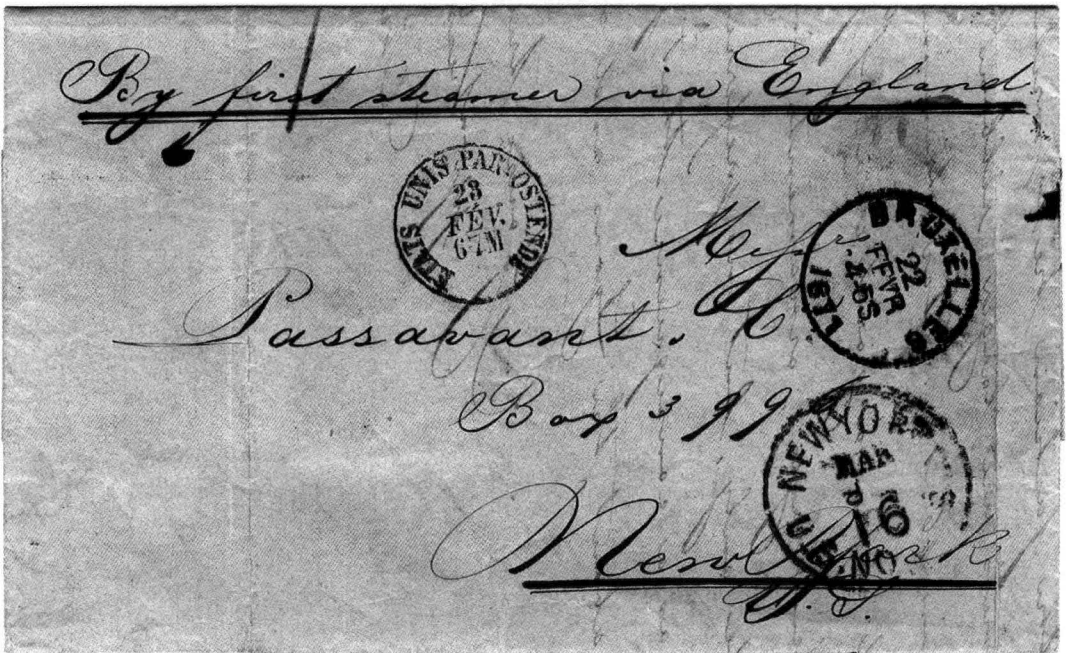 By first steamer via England.
ETATS UNIS PAR OSTENDE
23
FÉV.
67M
Messr
BRUXELLES
22
FEVR
4-5S
1871
Passavant. & C.
Box 399
NEW YORK
MAR
New York